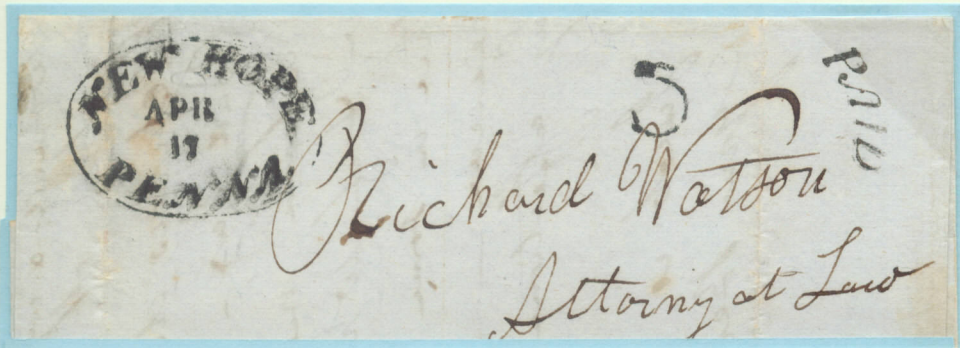 NEW HOPE
APR
17
PENNA
5
PAID
Richard Watson
Attorny at Law